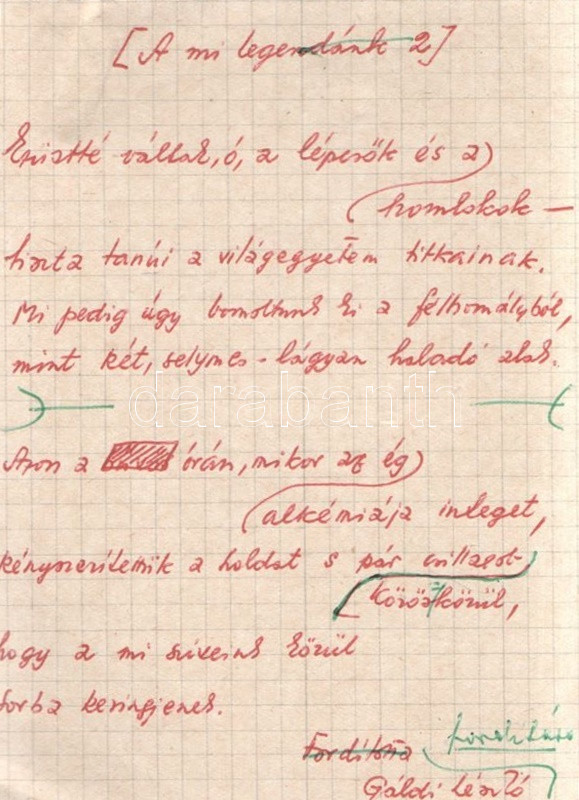 [A mi legendánk 2]
Ezüstté váltak, ó, a lépcsők és a
homlokok —
tiszta tanúi a világegyetem titkainak.
Mi pedig úgy bomoltunk ki a félhomályból,
mint két, selymes-lágyan haladó alak.
darabanth
Azon a órán, mikor az ég
alkémiája integet,
kényszerítették a holdat s pár csillagot
köröskörül,
hogy a mi szíveink körül
forba keringjenek.
Fordította
Gáldi László